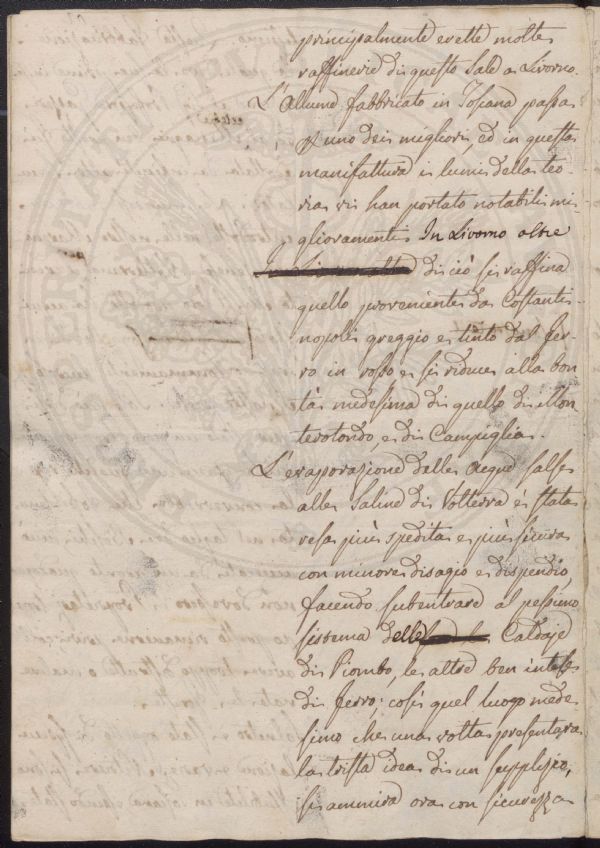 principalmente erette molte
raffinerie di questo Sale a Livorno.
L'Allume fabbricato in Toscana passa
p uno dei migliori, ed in questa
manifattura i lumi della teo-
ria vi han portato notabili mi-
glioramenti. In Livorno oltre
di ciò si raffina
quello proveniente da Costanti-
nopoli greggio e tinto dal fer-
ro in rosso e si riduce alla bon
tà medesima di quello di Mon
terotondo, e di Campiglia.
L'evaporazione delle acque salse
alle Saline di Volterra è stata
resa più spedita e più sicura
con minore disagio e dispendio,
facendo subentrare al pessimo
sistema delle Caldaje
di Piombo, le altre ben intese
di ferro; così quel luogo mede
simo che una volta presentava
la trista idea di un supplizio,
si ammira ora con sicurezza